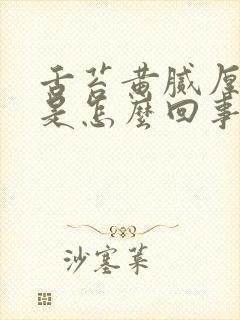 舌苔黄腻厚
是怎麼回事
沙塞菜